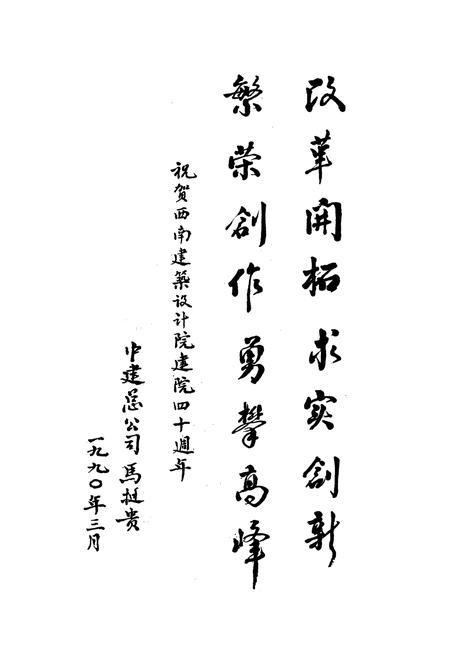 改革開拓求实創新
繁荣創作勇攀高峰
祝賀西南建築设计院建院四十週年
中建总公司馬挺贵
一九九〇年三月